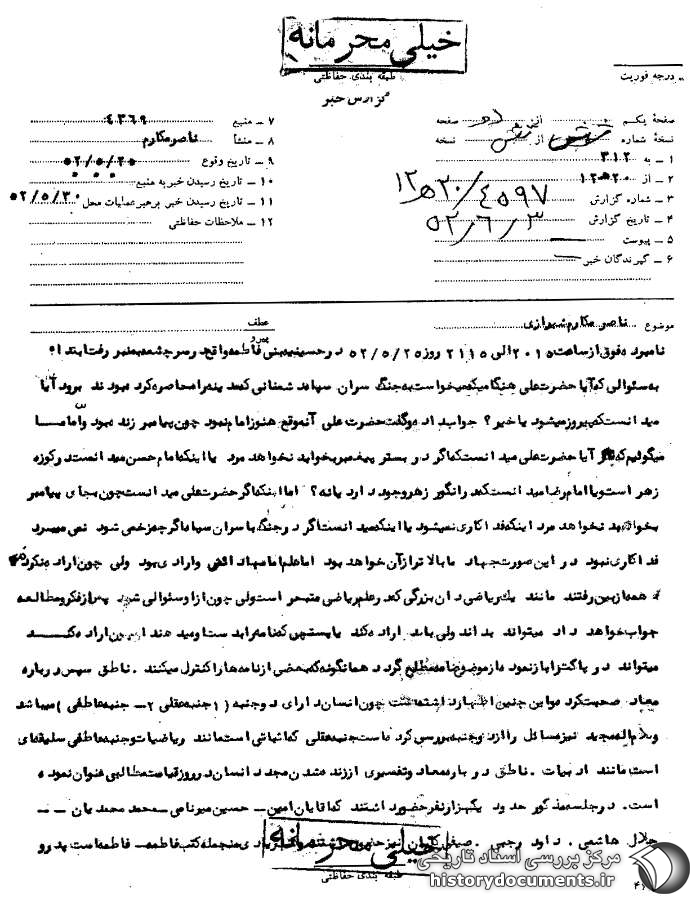 خیلی محرمانه
طبقه بندی حفاظتی
گزارش خبر
درجه فوریت
صفحه یکم از دو صفحه
نسخهٔ شماره شش از شش نسخه
۱ - به ۳۱۲
۲ - از ۲۰ ه ۱۲
۳ - شماره گزارش ۴۵۹۷/۲۰ ه ۱۲
۴ - تاریخ گزارش ۵۲/۶/۳
۵ - پیوست
۶ - گیرندگان خبر
۷ - منبع ۴۳۶۹
۸ - منشأ ناصر مکارم
۹ - تاریخ وقوع ۵۲/۵/۲۵
۱۰ - تاریخ رسیدن خبر به منبع
۱۱ - تاریخ رسیدن خبر برهبر عملیات محل ۵۲/۵/۳۰
۱۲ - ملاحظات حفاظتی
موضوع ناصر مکارم شیرازی
عطف
پیرو
نامبرده فوق از ساعت ۲۰۱۵ الی ۲۱۱۵ روز ۵۲/۵/۲۵ در حسینیه بنی فاطمه واقع در سرچشمه بمنبر رفت ابتدا
به سئوالی که آیا حضرت علی هنگامیکه میخواست به جنگ سران سپاه دشمنانی که مدینه را محاصره کرده بودند برود آیا
میدانست که پیروز میشود یا خیر؟ جواب داد و گفت حضرت علی آنموقع هنوز امام نبود چون پیامبر زنده بود و اما ما
میگوئیم که آیا حضرت علی میدانست که اگر در بستر پیغمبر بخوابد نخواهد مرد یا اینکه امام حسن میدانست در کوزه
زهر است و یا امام رضا میدانست که در انگور زهر وجود دارد یا نه؟ اما اینکه اگر حضرت علی میدانست چون بجای پیامبر
بخوابد نخواهد مرد اینکه فداکاری نمیشود یا اینکه میدانست اگر در جنگ با سران سپاه اگر چه زخمی شود نمی میرد
فداکاری نبود در این صورت جهاد ما بالاتر از آن خواهد بود اما علم امام ارادی بود ولی چون اراده نکرده
همه از بین رفتند مانند یک ریاضی دان بزرگی که در علم ریاضی متبحر است ولی چون از او سئوالی شود پس از فکر و مطالعه
جواب خواهد داد میتواند بداند ولی باید اراده کند یا پستچی که نامه را بدست او میدهند اراده کند
میتواند در پاکت را باز نموده از موضوع نامه مطلع گردد همانگونه که بعضی از نامه ها را کنترل میکنند . ناطق سپس درباره
معاد صحبت کرد و این چنین اظهار داشته است چون انسان دارای دو جنبه (۱ جنبه عقلی ۲ - جنبه عاطفی) میباشد
کلام اله مجید نیز مسائل را از دو جنبه بررسی کرده است جنبه عقلی که اثباتی است مانند ریاضیات و جنبه عاطفی سلیقه ای
است مانند ادبیات . ناطق درباره معاد و تفسیری از زنده شدن مجدد انسان در روز قیامت مطالبی عنوان نموده
است . در جلسه مذکور حدود یکهزار نفر حضور داشتند که آقایان امین - حسین میرناصی - محمد محمدیان -
جلال هاشمی . داود رجبی . نیز
خیلی محرمانه
طبقه بندی حفاظتی
مرکز بررسی اسناد تاریخی
historydocuments.ir